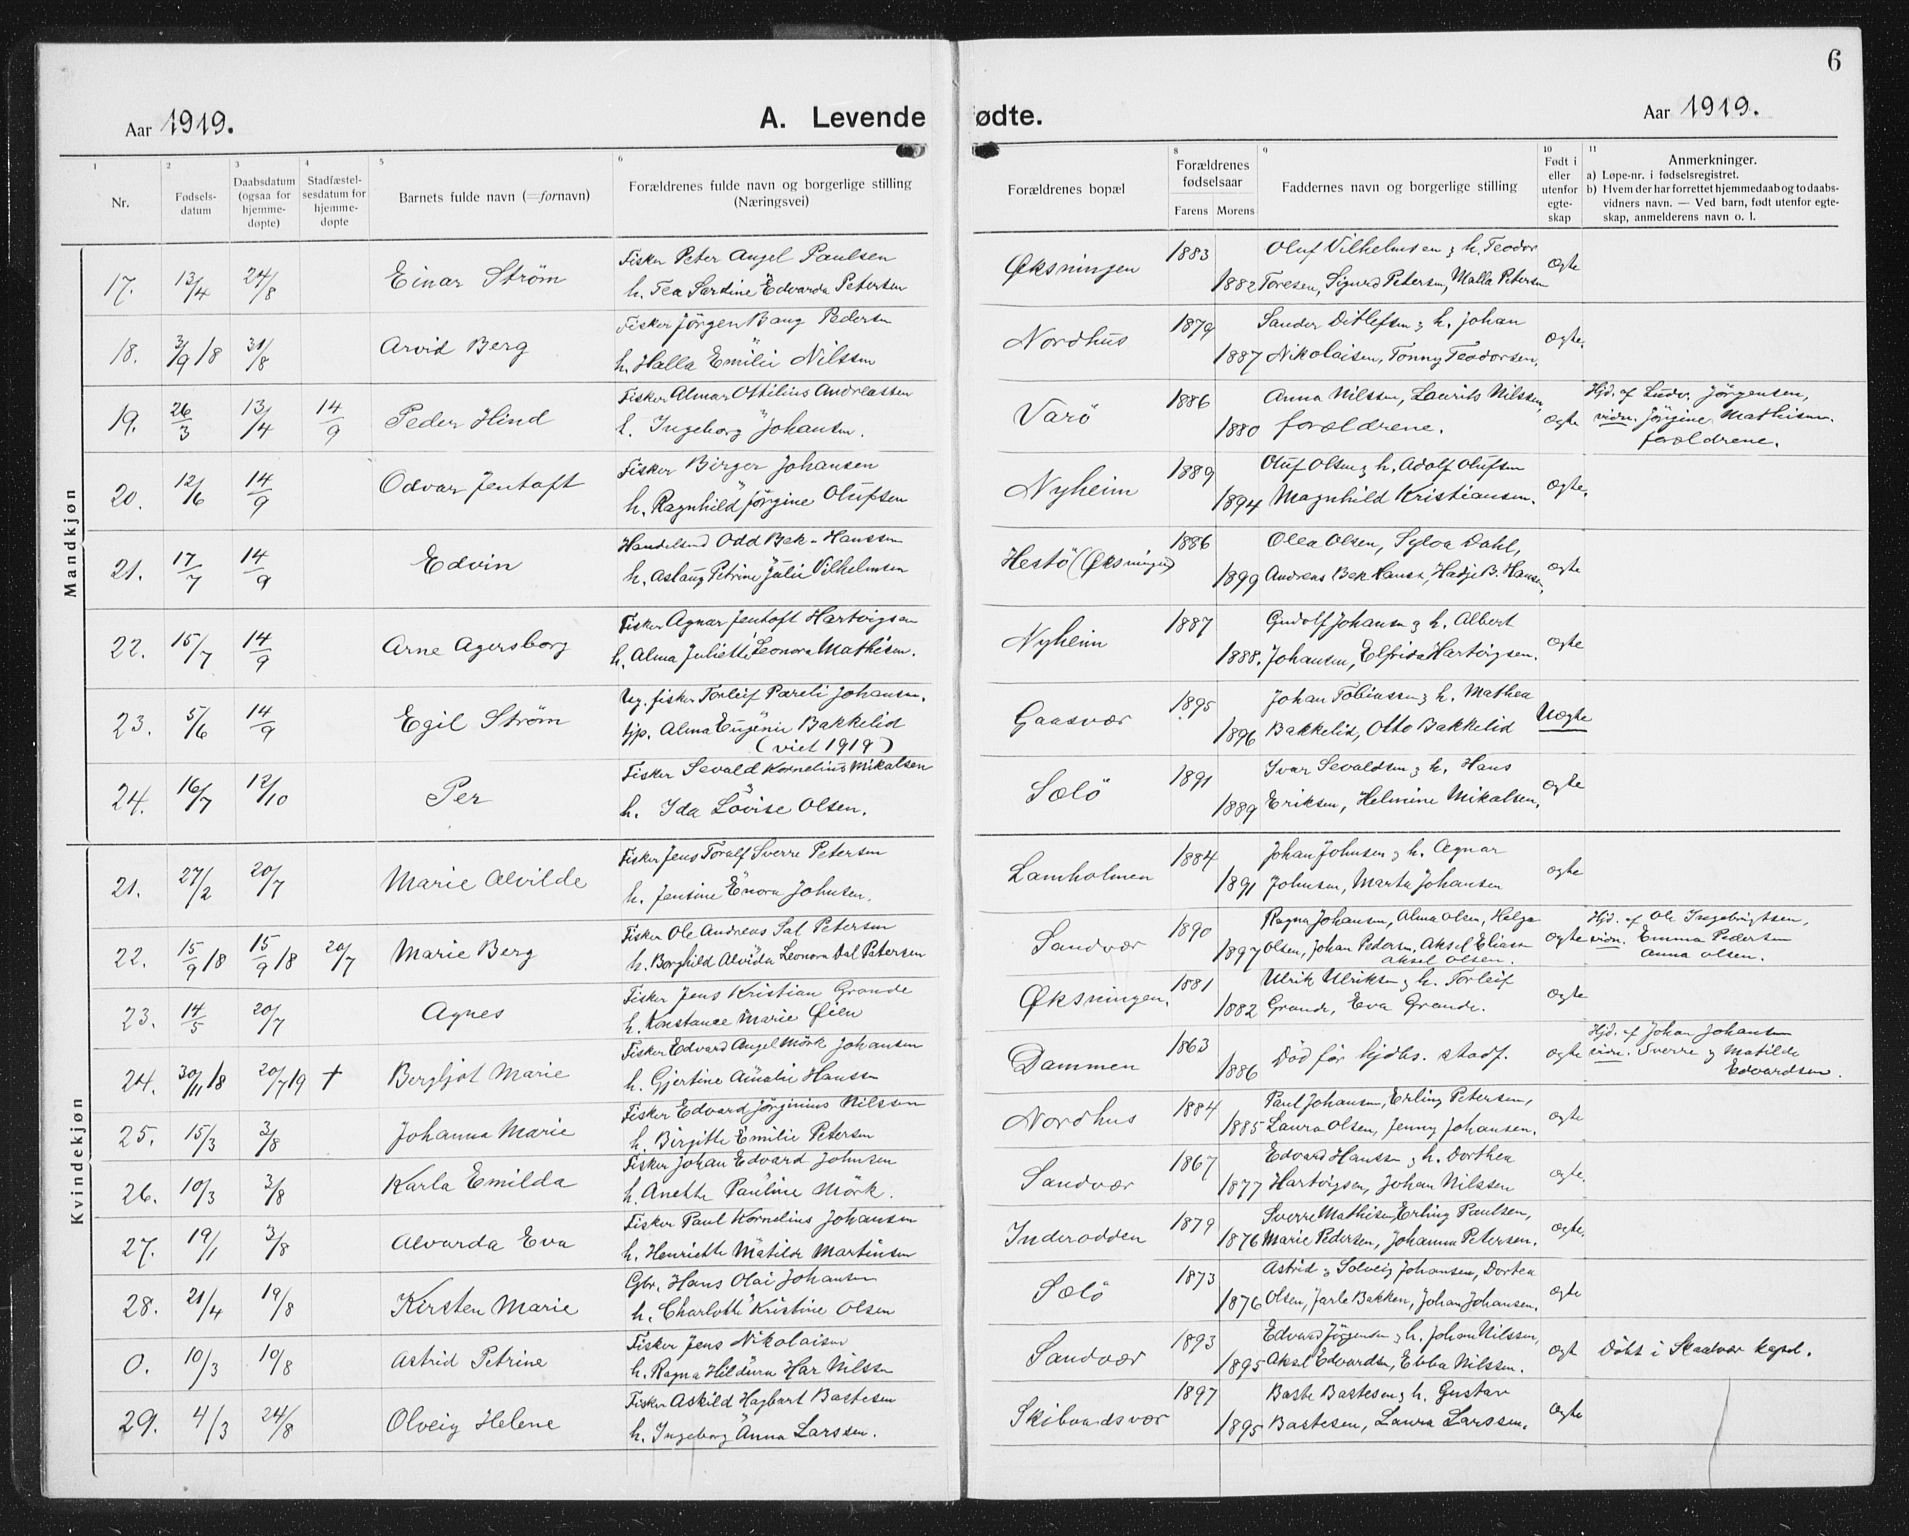 6
Aar 1919. A. Levende fødte. Aar 1919.
1 2 3 4 5 6 8 9 10 11
Nr. Fødsels-datum Daabsdatum (ogsaa for hjemme-døpte) Stadfæstel-sesdatum for hjemme-døpte Barnets fulde navn (=fornavn) Forældrenes fulde navn og borgerlige stilling (Næringsvei) Forældrenes bopæl Forældrenes fødselsaar Farens Morens Faddernes navn og borgerlige stilling Født i eller utenfor egte-skap Anmerkninger.
a) Løpe-nr. i fødselsregistret.
b) Hvem der har forrettet hjemmedaab og to daabs-
vidners navn. — Ved barn, født utenfor egte-
skap, anmelderens navn o. l.
Mandkjøn
17. 13/4 24/8 Einar Strøm Fisker Peter Angel Paulsen Øksningen 1883 Oluf Vilhelmsen & h. Teodor ægte
h. Tea Sardine Edvarda Petersen 1882 Toresen, Sigurd Petersen, Malla Petersen
18. 3/9 18 31/8 Arvid Berg Fisker Jörgen Bang Pedersen Nordhus 1879 Sander Ditlefsen & h. Johan ægte.
h. Halla Emilie Nilssen 1887 Nikolaisen, Tonny Teodorsen.
19. 26/3 13/4 14/9 Peder Hind Fisker Almar Ottilius Andreassen Varö 1886 Anna Nilssen, Laurits Nilssen, ægte Hjd. af Ludv. Jörgensen,
h. Ingeborg Johansen. 1880 forældrene. vidn. Jörgine Mathisen.
forældrene.
20. 12/6 14/9 Odvar Jentoft Fisker Birger Johansen Nyheim 1889 Oluf Olsen & h. Adolf Olufsen ægte.
h. Ragnhild Jörgine Olufsen 1894 Magnhild Kristiansen.
21. 17/7 14/9 Edvin Handelsmd Odd Bek-Hanssen Hestö (Øksningen) 1886 Olea Olsen, Sylva Dahl, ægte
h. Aslaug Petrine Julie Vilhelmsen 1899 Andreas Bek Hanss, Hadje B. Hansen,
22. 15/7 14/9 Arne Agersborg Fisker Agnar Jentoft Hartvigsen Nyheim 1887 Gudolf Johansen & h. Albert ægte
h. Alma Juliette Leonora Mathisen. 1888. Johansen, Elfrida Hartvigsen.
23. 5/6 14/9 Egil Strøm Ug. fisker Torleif Pareli Johansen. Gaasvær 1895 Johan Tobiassen & h. Mathea Uægte
tjp. Alma Eugenie Bakkelid 1896 Bakkelid, Otto Bakkelid
(viet 1919)
24. 16/7 12/10 Per Fisker Sevald Kornelius Mikalsen Sølö 1891 Ivar Sevaldsen & h. Hans ægte
h. Ida Lovise Olsen. 1889 Eriksen, Helmine Mikalsen,
Kvindekjøn
21. 27/2 20/7 Marie Alvilde Fisker Jens Toralf Sverre Petersen Lamholmen 1884 Johan Johnsen & h. Agnar ægte
h. Jensine Enora Johnsen. 1891 Johnsen, Marta Johansen
22. 15/9 18 15/9 18 20/7 Marie Berg Fisker Ole Andreas Sal Petersen Sandvær 1890 Ragna Johansen, Alma Olsen, Helga ægte Hjd. af Ole Ingebrigtsen,
h. Borghild Alvida Leonora Dal Petersen 1897 Olsen, Johan Pedersen, Aksel Eliasen vidn. Emma Pedersen
Aksel Olsen. Anna Olsen.
23. 14/5 20/7 Agnes Fisker Jens Kristian Grande Øksningen. 1881 Ulrik Ulriksen & h. Torleif ægte
h. Konstance Marie Øien 1882 Grande, Eva Grande.
24. 30/11 18 20/7 19 + Bergljot Marie Fisker Edvard Angel Mörk Johansen Dammen 1863 Död før hjdbs. stadf. ægte Hjd. af Johan Johansen
h. Gjertine Amalie Hanssen 1886 vidn. Sverre & Matilde
Edvardsen.
25. 15/3 3/8 Johanna Marie Fisker Edvard Jörginius Nilssen Nordhus 1884 Paul Johansen, Erling Petersen, ægte
h. Birgitte Emilie Petersen 1885 Laura Olsen, Jenny Johansen.
26. 10/3 3/8 Karla Emilda Fisker Johan Edvard Johnsen Sandvær 1867 Edvard Hanssen & h. Dorthea ægte.
h. Anette Pauline Mörk. 1877 Hartvigsen, Johan Nilssen
27. 19/1 3/8 Alvarda Eva Fisker Paul Kornelius Johansen Inderodden 1879 Sverre Mathisen, Erling Paulsen, ægte.
h. Henriette Matilde Martinsen 1876 Marie Pedersen, Johanna Petersen.
28. 21/4 19/8 Kirsten Marie Gbr. Hans Olai Johansen Sølö 1873 Astrid & Solveig Johansen, Dortea ægte
h. Charlotte Kristine Olsen 1876 Olsen, Jarle Bakken, Johan Johansen.
0. 10/3 10/8 Astrid Petrine Fisker Jens Nikolaisen Sandvær 1893 Edvard Jörgensen & h. Johan Nilssen, ægte Döbt i Skaalvær kapel.
h. Ragna Hildurn Har Nilssen 1895 Aksel Edvardsen, Ebba Nilssen.
29. 4/3 24/8 Olveig Helene Fisker Askild Hagbart Bastesen Skibaadsvær 1897 Baste Bastesen & h. Gustav ægte
h. Ingeborg Anna Larssen. 1895 Bastesen, Laura Larssen.